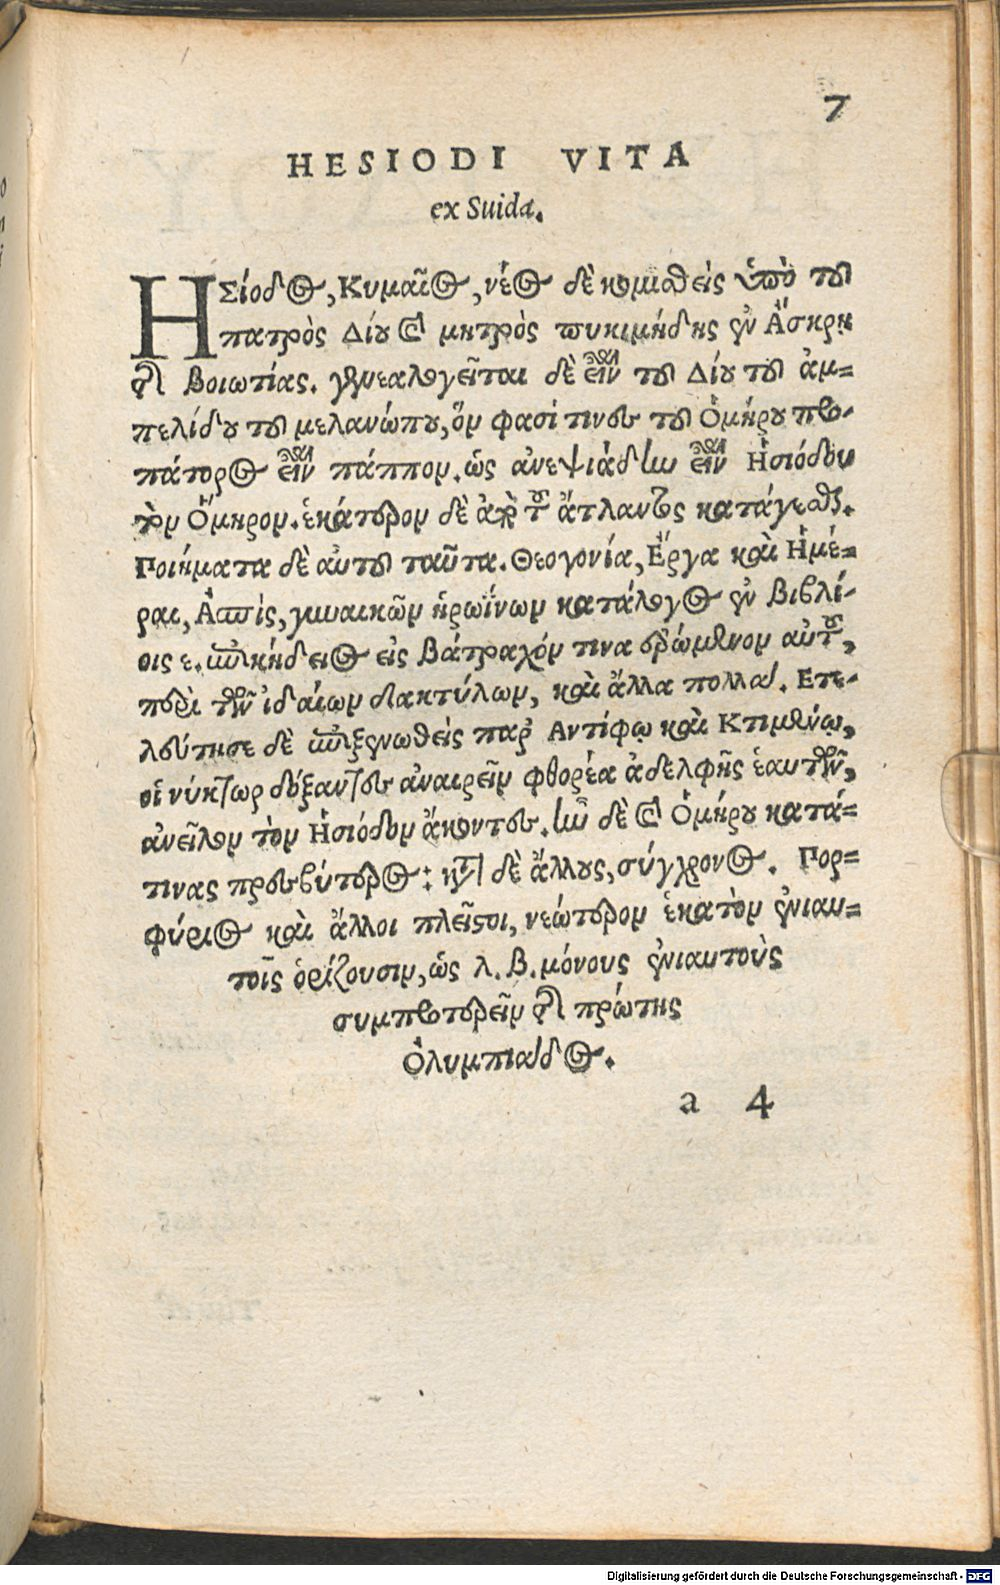 7
HESIODI VITA
ex Suida.
ΗΣίοδος, Κυμαῖος, νέος δὲ κομιαθεὶς ὑπὸ τοῦ
πατρὸς Δίου καὶ μητρὸς πυκιμήδης ἐν Ἄσκρη
τῆς Βοιωτίας. γενεαλογεῖται δὲ εἶναι τοῦ Δίου τοῦ ἀμ=
πελίδου τοῦ μελανώπου, ὅν φασί τινες τοῦ Ὁμήρου προ-
πάτορος εἶναι πάππον. ὡς ἀνεψιάδην εἶναι Ἡσιόδου
τὸν Ὅμηρον. ἑκάτερον δὲ ἀπὸ τοῦ ἄτλαντος κατάγεσθαι.
Ποιήματα δὲ αὐτοῦ ταῦτα. Θεογονία, Ἔργα καὶ Ἡμέ=
ραι, Ἀσπὶς, γυναικῶν ἡρωΐνων κατάλογος ἐν βιβλί-
οις ε. ἐπικήδειος εἰς βάτραχόν τινα ἐρώμενον αὐτοῦ,
περὶ τῶν ἰδαίων δακτύλων, καὶ ἄλλα πολλά. Ετε-
λεύτησε δὲ ἐπιξενωθεὶς παρ' Αντίφῳ καὶ Κτιμένῳ,
οἳ νύκτωρ δόξαντες ἀναιρεῖν φθορέα ἀδελφῆς ἑαυτῶν,
ἀνεῖλον τὸν Ἡσίοδον ἄκοντες. ἦν δὲ καὶ Ὁμήρου κατά=
τινας πρεσβύτερος: κατὰ δὲ ἄλλους, σύγχρονος. Πορ=
φύριος καὶ ἄλλοι πλεῖστοι, νεώτερον ἑκατὸν ἐνιαυ=
τοῖς ὁρίζουσιν, ὡς λ. β. μόνους ἐνιαυτοὺς
συμπροτερεῖν τῆς πρώτης
Ὀλυμπιάδος.
a 4
Digitalisierung gefördert durch die Deutsche Forschungsgemeinschaft - DFG